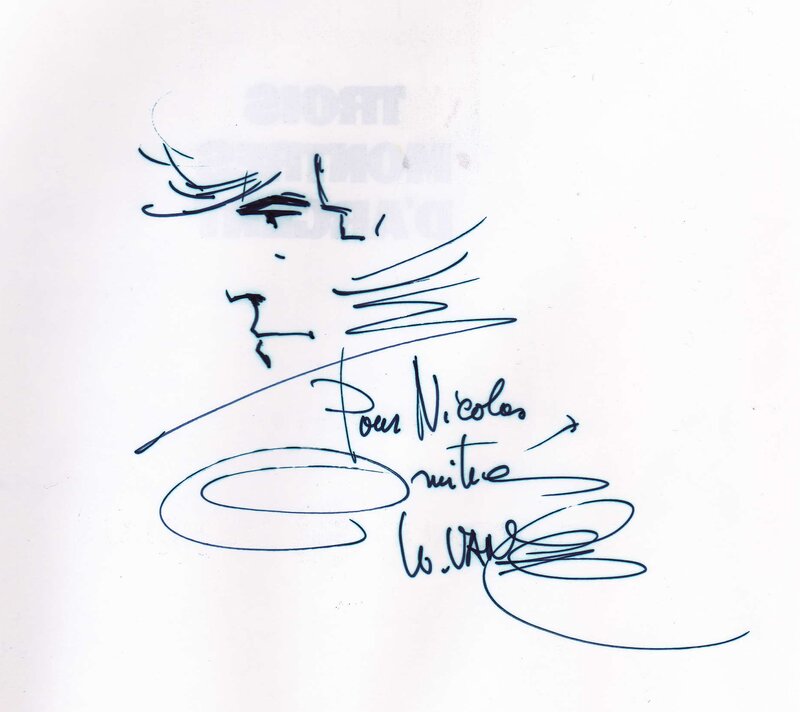 TROIS
MONTRES
D'ARGENT
Pour Nicolas
Amitié
W. VANCE